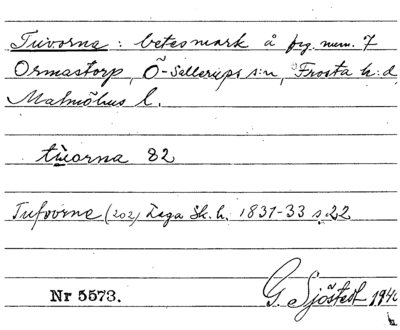 Tuvorna: betesmark å frg. num. 7
Ormastorp, Ö-Sallerups s:n, Frosta h:d,
Malmöhus l.
tùorna 82
Tufvorne (202) Laga Sk. h. 1831-33 s. 22
Nr 5573. G. Sjöstedt 1940